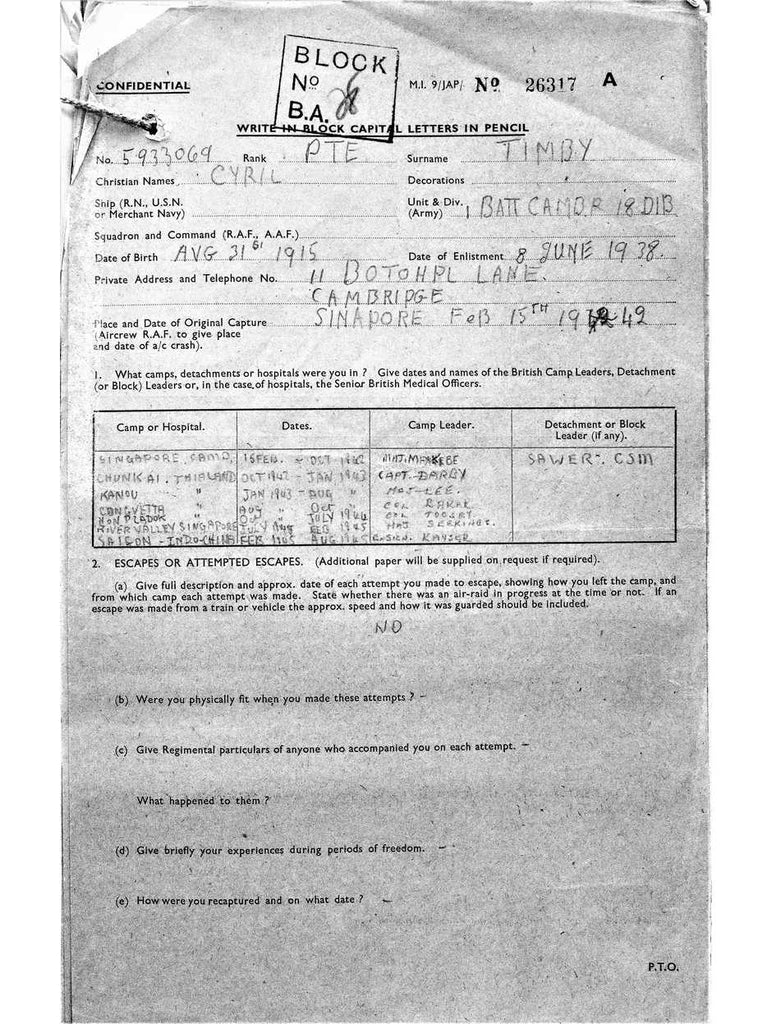 BLOCK
No
B.A. 28
CONFIDENTIAL
M.I. 9/JAP/ No 26317 A
WRITE IN BLOCK CAPITAL LETTERS IN PENCIL
No. 5933069 Rank PTE Surname TIMBY
Christian Names CYRIL Decorations
Ship (R.N., U.S.N. or Merchant Navy)
Unit & Div. (Army) 1 BATT CAMBR 18 DIB
Squadron and Command (R.A.F., A.A.F.)
Date of Birth AVG 31st 1915 Date of Enlistment 8 JUNE 1938.
Private Address and Telephone No. 11 BOTOHPL LANE.
CAMBRIDGE
Place and Date of Original Capture SINAPORE FeB 15TH 19 42
(Aircrew R.A.F. to give place
and date of a/c crash).
1. What camps, detachments or hospitals were you in ? Give dates and names of the British Camp Leaders, Detachment
(or Block) Leaders or, in the case of hospitals, the Senior British Medical Officers.
Camp or Hospital. Dates. Camp Leader. Detachment or Block Leader (if any).
SINGAPORE CAMP. 15 FEB. - OCT 1942 MAJ. SAWER. CSM
CHUNKAI. THIALAND OCT 1942 - JAN 1943 CAPT. DARBY
KANOU " JAN 1943 - AUG " MAJ LEE.
" AUG " Oct " COL
NON PLADOK " Oct " JULY 1944 COL TOOSEY.
RIVER VALLEY SINGAPORE JULY 1944 FEB 1945 MAJ
SAIGON - INDO-CHINA FEB 1945 AUG 1945
2. ESCAPES OR ATTEMPTED ESCAPES. (Additional paper will be supplied on request if required).
(a) Give full description and approx. date of each attempt you made to escape, showing how you left the camp, and
from which camp each attempt was made. State whether there was an air-raid in progress at the time or not. If an
escape was made from a train or vehicle the approx. speed and how it was guarded should be included.
NO
(b) Were you physically fit when you made these attempts ? -
(c) Give Regimental particulars of anyone who accompanied you on each attempt. -
What happened to them ?
(d) Give briefly your experiences during periods of freedom. -
(e) How were you recaptured and on what date ? -
P.T.O.